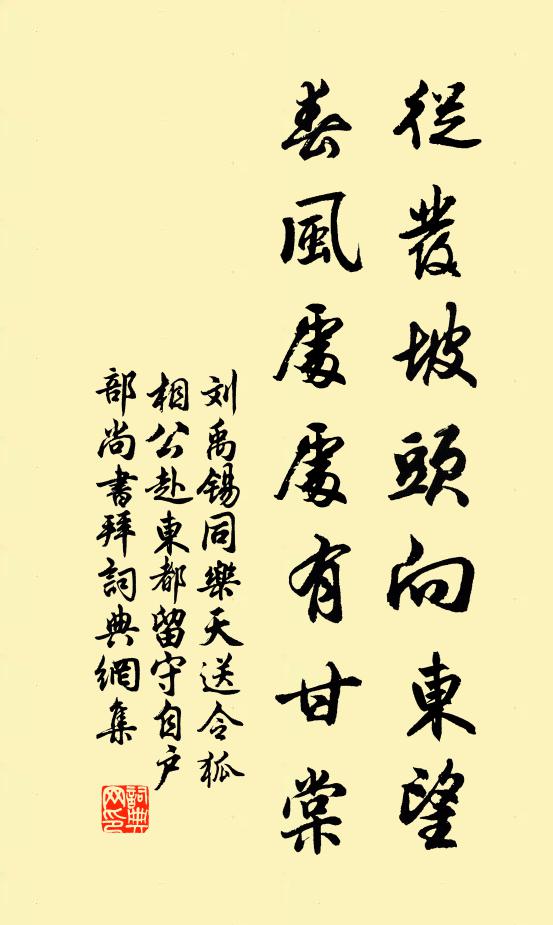 從發坡頭向東望
春風處處有甘棠
刘禹錫同樂天送令狐
相公赴東都留守自户
部尚書拜詞典網集
詞典
网印